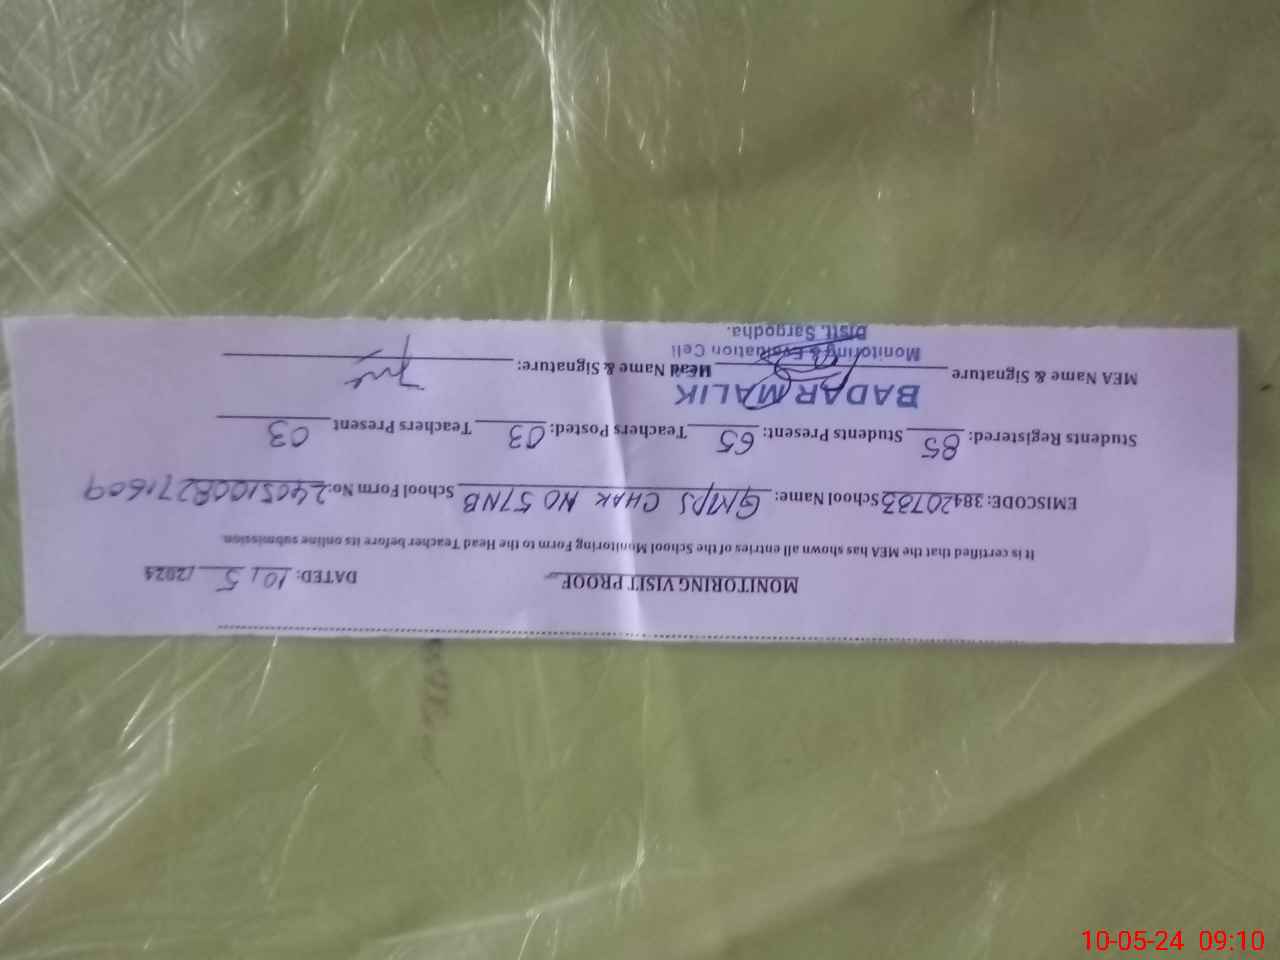 MONITORING VISIT PROOF
DATED: 10/5/2024
It is certified that the MEA has shown all entries of the School Monitoring Form to the Head Teacher before its online submission.
EMISCODE: 38420783 School Name: GMPS CHAK NO 57NB School Form No: 24051008271609
Students Registered: 85 Students Present: 65 Teachers Posted: 03 Teachers Present 03
BADAR MALIK
MEA Name & Signature Head Name & Signature:
Monitoring & Evaluation Cell
Distt. Sargodha.
10-05-24 09:10